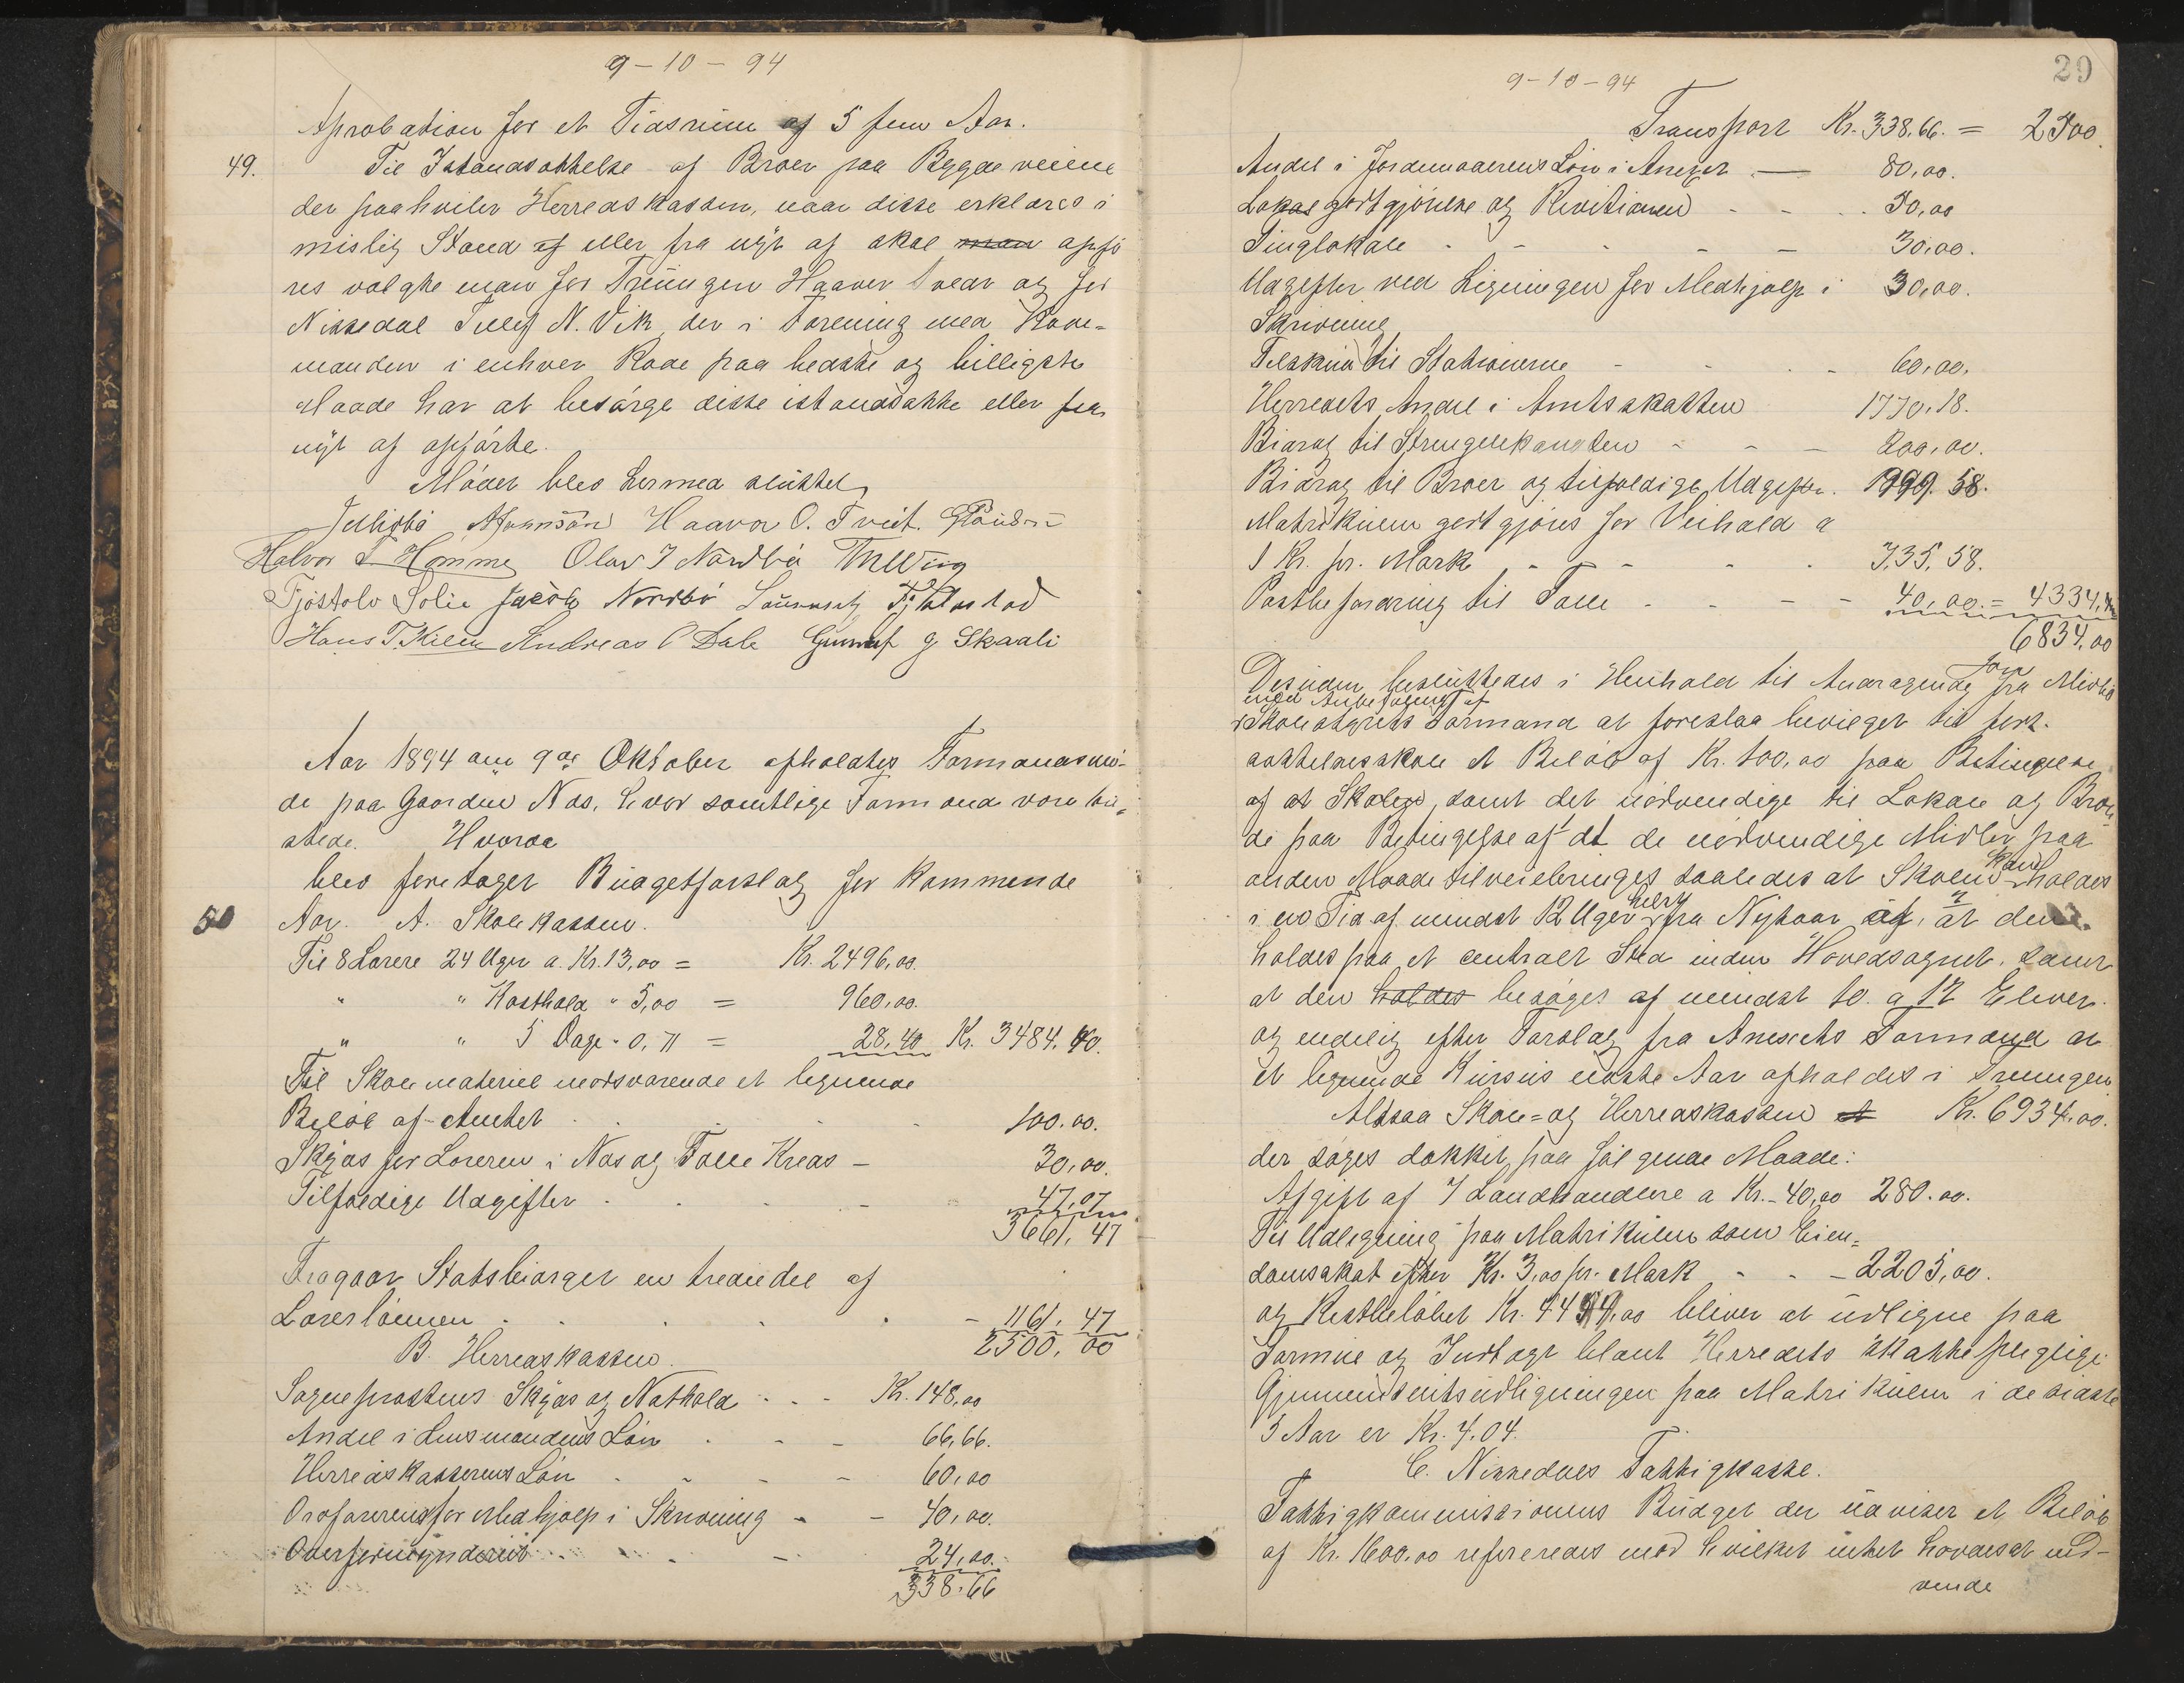 9-10-94
Aprobation for et Tidsrum af 5 fem Aar.
49. Til Istandsættelse af Broer paa Bygdeveiene
der paahviler Herredskassen, naar disse erklæres i
mislig Stand af eller fra nyt af skal man opfö
res valgte man for Treungen Haavor Tveit og for
Nissedal Tellef N. Vik, der i Forening med Rode=
manden i enhver Rode paa bedste og billigste
Maade har at besörge disse istandsatte eller fra
nyt af opförte.
Mödet blev hermed sluttet
Haavor O. Tveit.
Halvor T Homme Olav J Nordbö
Tjöstolv Solie Jacob Nordbö
Hans T. Kilen Andreas O Dale Gunnuf G Skaali
Aar 1894 den 9de Oktober afholdtes Formandsmö-
de paa Gaarden Næs, hvor samtlige Formænd vare til-
stede. Hvorda
blev foretaget Budgetforslag for kommende
50 Aar. A. Skolekassen.
Til 8 Lærere 24 Uger a. Kr. 13,00 = Kr. 2496,00.
" " Kosthold " 5,00 = 960,00.
" " 5 Dage " 0,71 = 28,40 Kr. 3484.40.
Til Skolemateriel modsvarende et lignende
Belöb af Amtet 100.00.
Skyds for Læreren i Næs og Folle Kreds - 30,00.
Tilfældige Udgifter 47,07
3661,47
Fragaar Statsbidraget en trediedel af
Lærerlönnen - 1161,47
2500,00
B. Herredskassen.
Sogneprestens Skyds og Nathold - - - Kr. 148,00
Andel i Lensmandens Lön - - - 66,66.
Herredskassererens Lön - - - 60,00
Ordföreren for Medhjælp i Skrivning - - 40,00.
Overformynderiet - - - 24,00.
338.66
29
9-10-94
Transport Kr. 338.66. = 2500.
Andel i Jordemoderens Lön i Anexet — 80,00.
Lokalgodtgjörelse og Revisionen - - - 50,00
Tinglokale - - - 30,00.
Udgifter ved Ligningen for Medhjælp i 30,00.
Skrivning
Tilskud til Stationerne - - - 60,00.
Herredets Andel i Amtsskatten 1770.18.
Bidrag til Strengelekangten - - - 200,00.
Bidrag til Broer og tilfældige Udgifter. 999.58.
Matrikulen godtgjöres for Veihold a
1 Kr. pr. Mark - - - 735,58.
Postbefordring til Folle - - - 40,00. = 4334,00
6834,00
Desuden besluttedes i Henhold til Andragende fra Misbö
med Anbefaling af
Skolestyrets Formand at foreslaa bevilget til fort-
sættelsesskole et Belöb af Kr. 100,00 paa Betingelse
af at Skolen, samt det nödvendige til Lokale og Bræn-
de paa Betingelse af at de nödvendige Midler paa
anden Maade tilveiebringes saaledes at Skolen kan holdes
i en Tid af mindst 12 Uger helst fra Nytaar af, at den
holdes paa et centralt Sted inden Hovedsognet, samt
at den holdes besöges af mindst 10 a 12 Elever.
og endelig efter Forslag fra Anexets Formænd at
et lignende Kursus næste Aar afholdes i Treungen
Altsaa Skole= og Herredskassen et Kr. 6934,00.
der söges dækket paa fölgende Maade:
Afgift af 7 Landhandlere a Kr. 40,00 280.00.
Til Udligning paa Matrikulen som Eien=
domsskat efter Kr. 3,00 pr. Mark - - - 2205,00.
og Restbelöbet Kr. 4449,00 bliver at udligne paa
Formue og Indtægt blant Herredets skattepligtige
Gjennemsnitsudligningen paa Matrikulen i de sidste
5 Aar er Kr. 4.04.
C. Nissedals Fattigkasse.
Fattigkommissionens Budget der udviser et Belöb
af Kr. 1600.00 refereredes mod hvilket intet havdes at ind-
vende